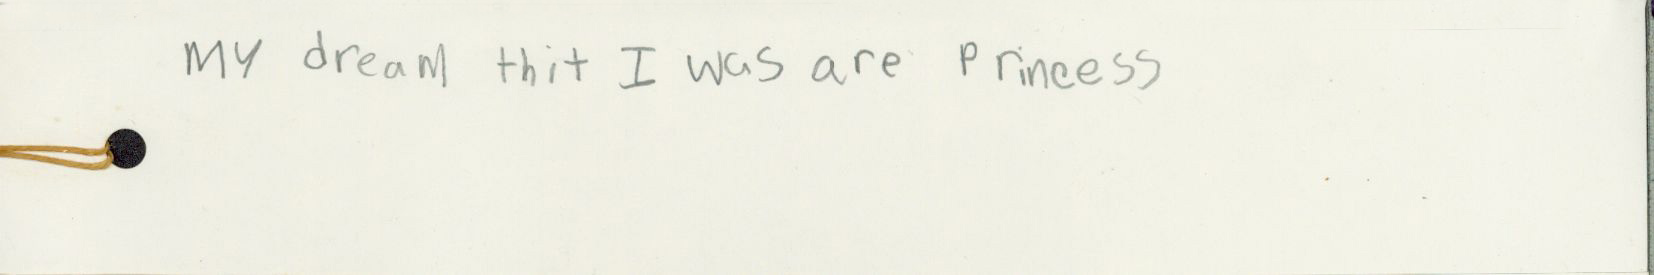 My dream thit I was are Princess